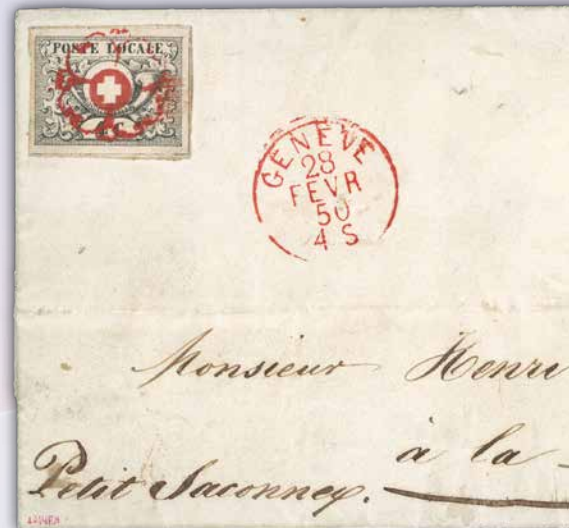 POSTE LOCALE
GENÈVE
28
FEVR
50
4 S
Monsieur Henri
à la
Petit Saconnex.